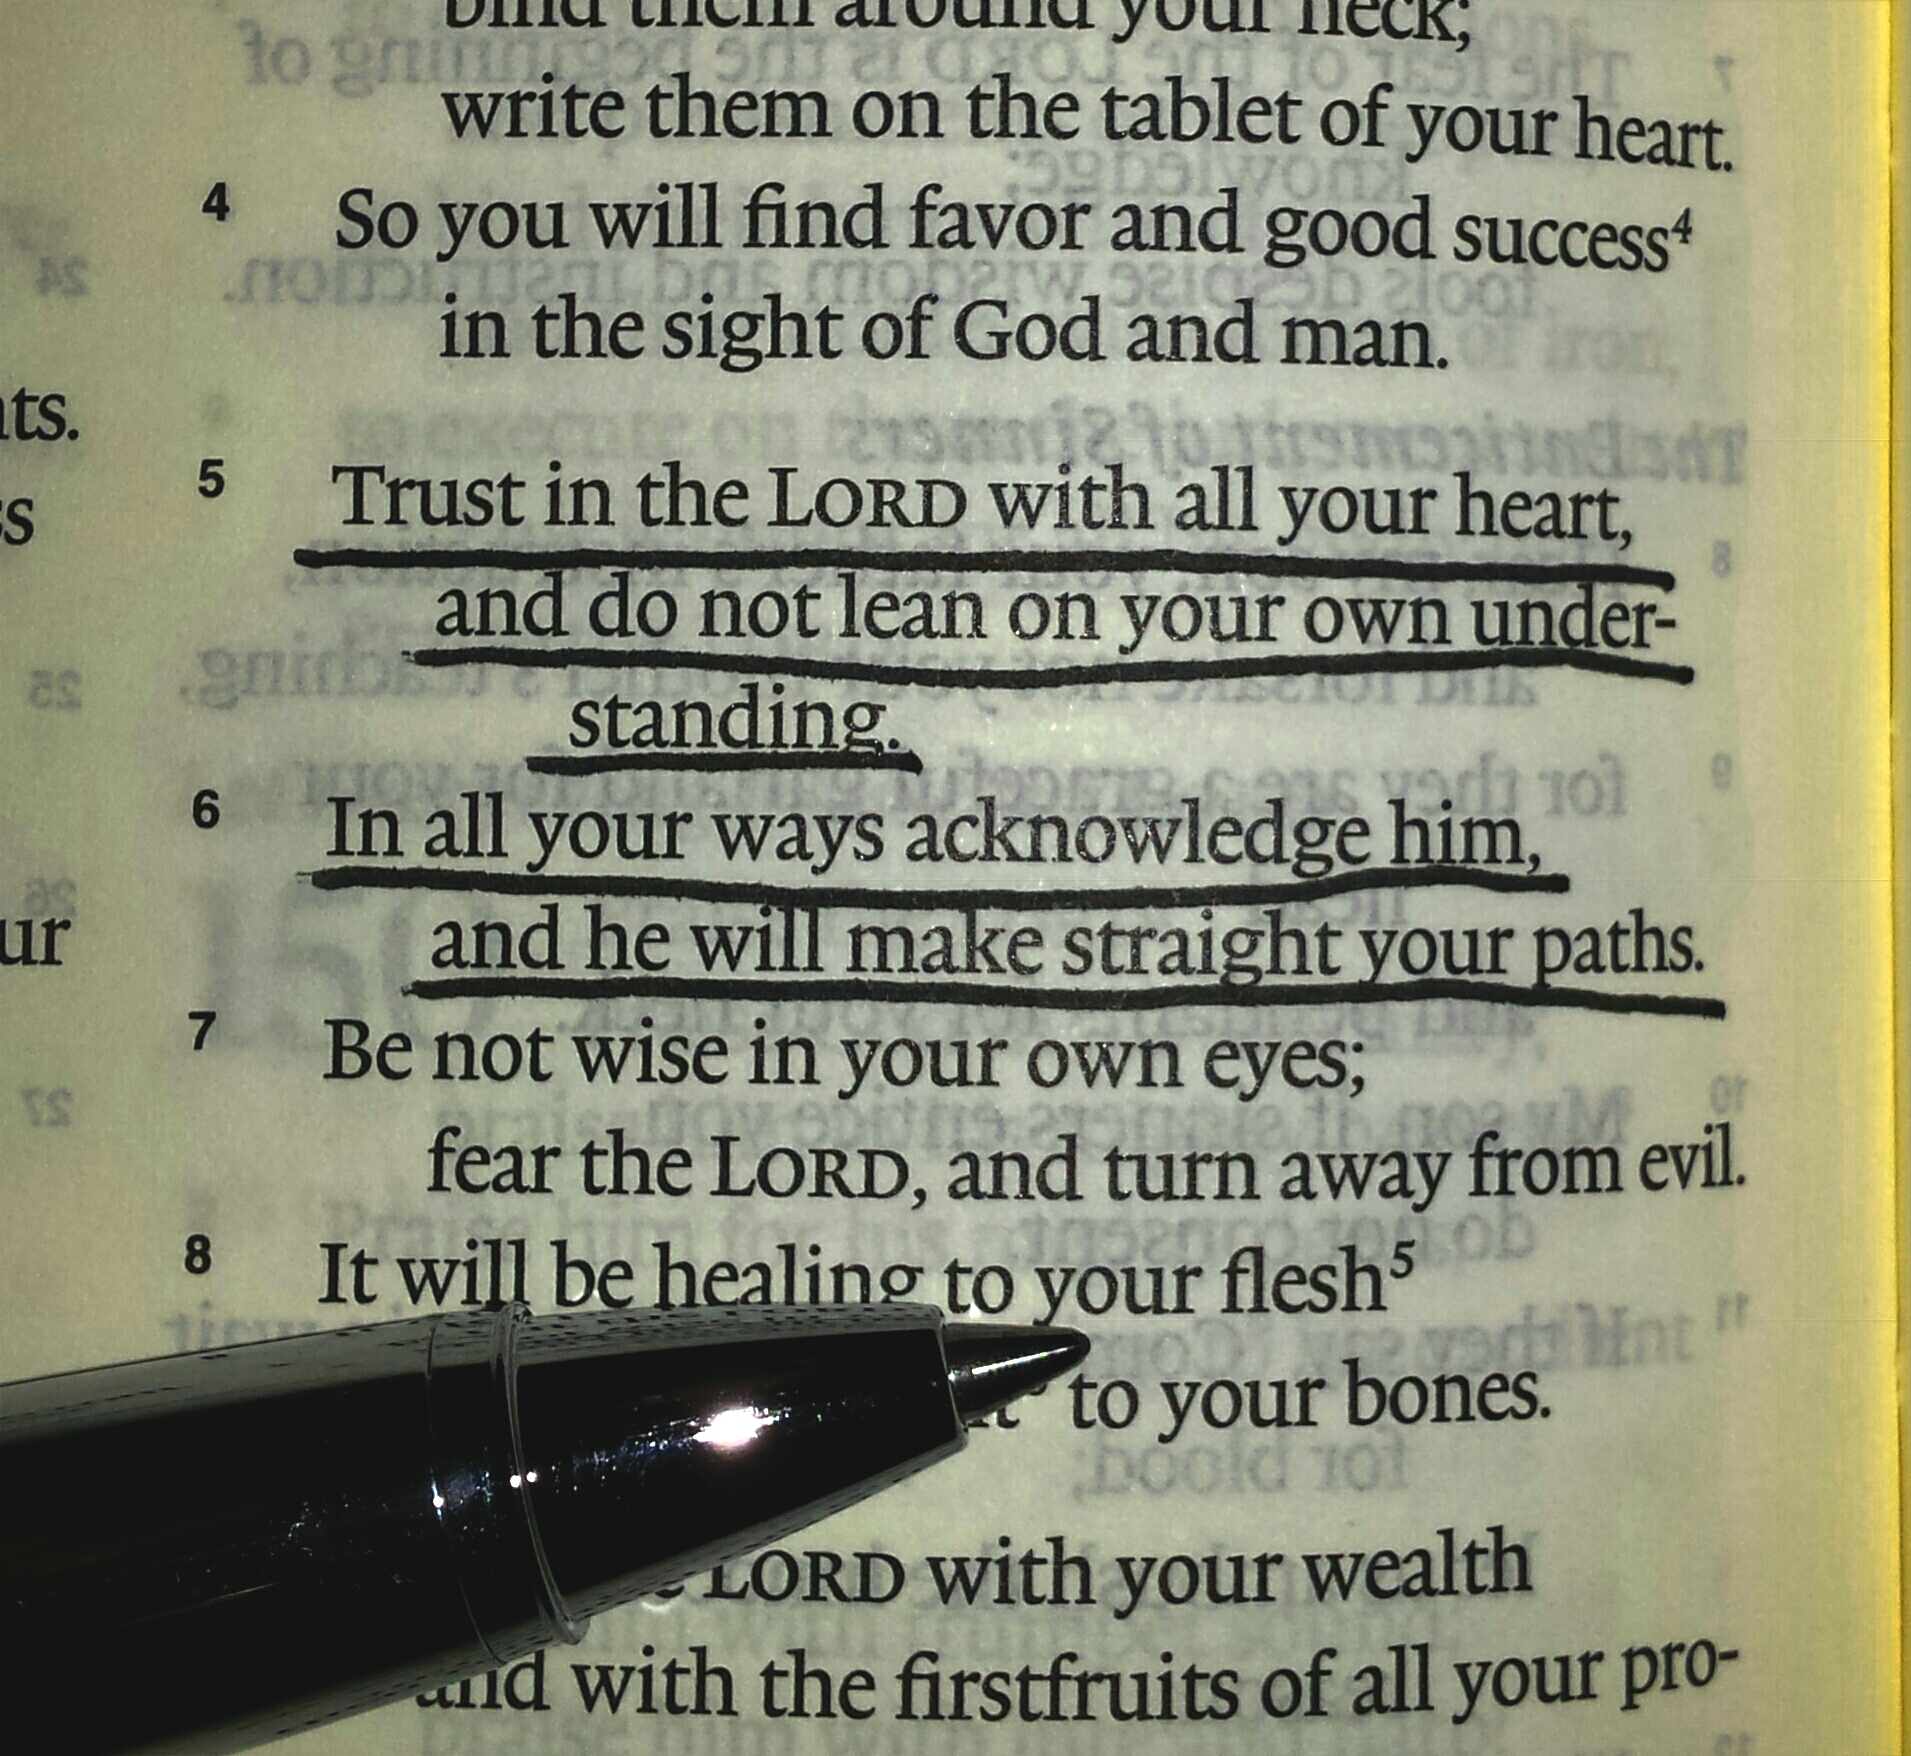 bind them around your neck;
write them on the tablet of your heart.
4 So you will find favor and good success4
in the sight of God and man.
5 Trust in the LORD with all your heart,
and do not lean on your own under-
standing.
6 In all your ways acknowledge him,
and he will make straight your paths.
7 Be not wise in your own eyes;
fear the LORD, and turn away from evil.
8 It will be healing to your flesh5
to your bones.
LORD with your wealth
and with the firstfruits of all your pro-